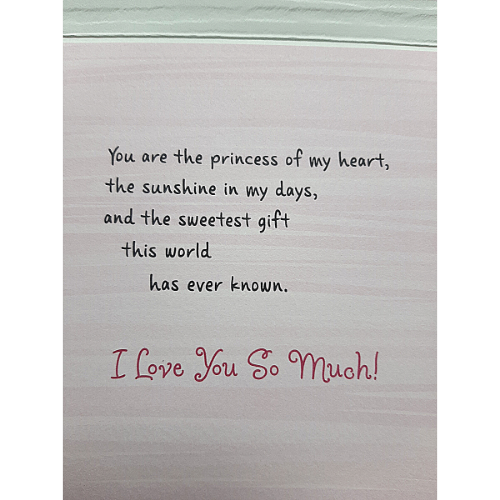 You are the princess of my heart,
the sunshine in my days,
and the sweetest gift
this world
has ever known.
I Love You So Much!